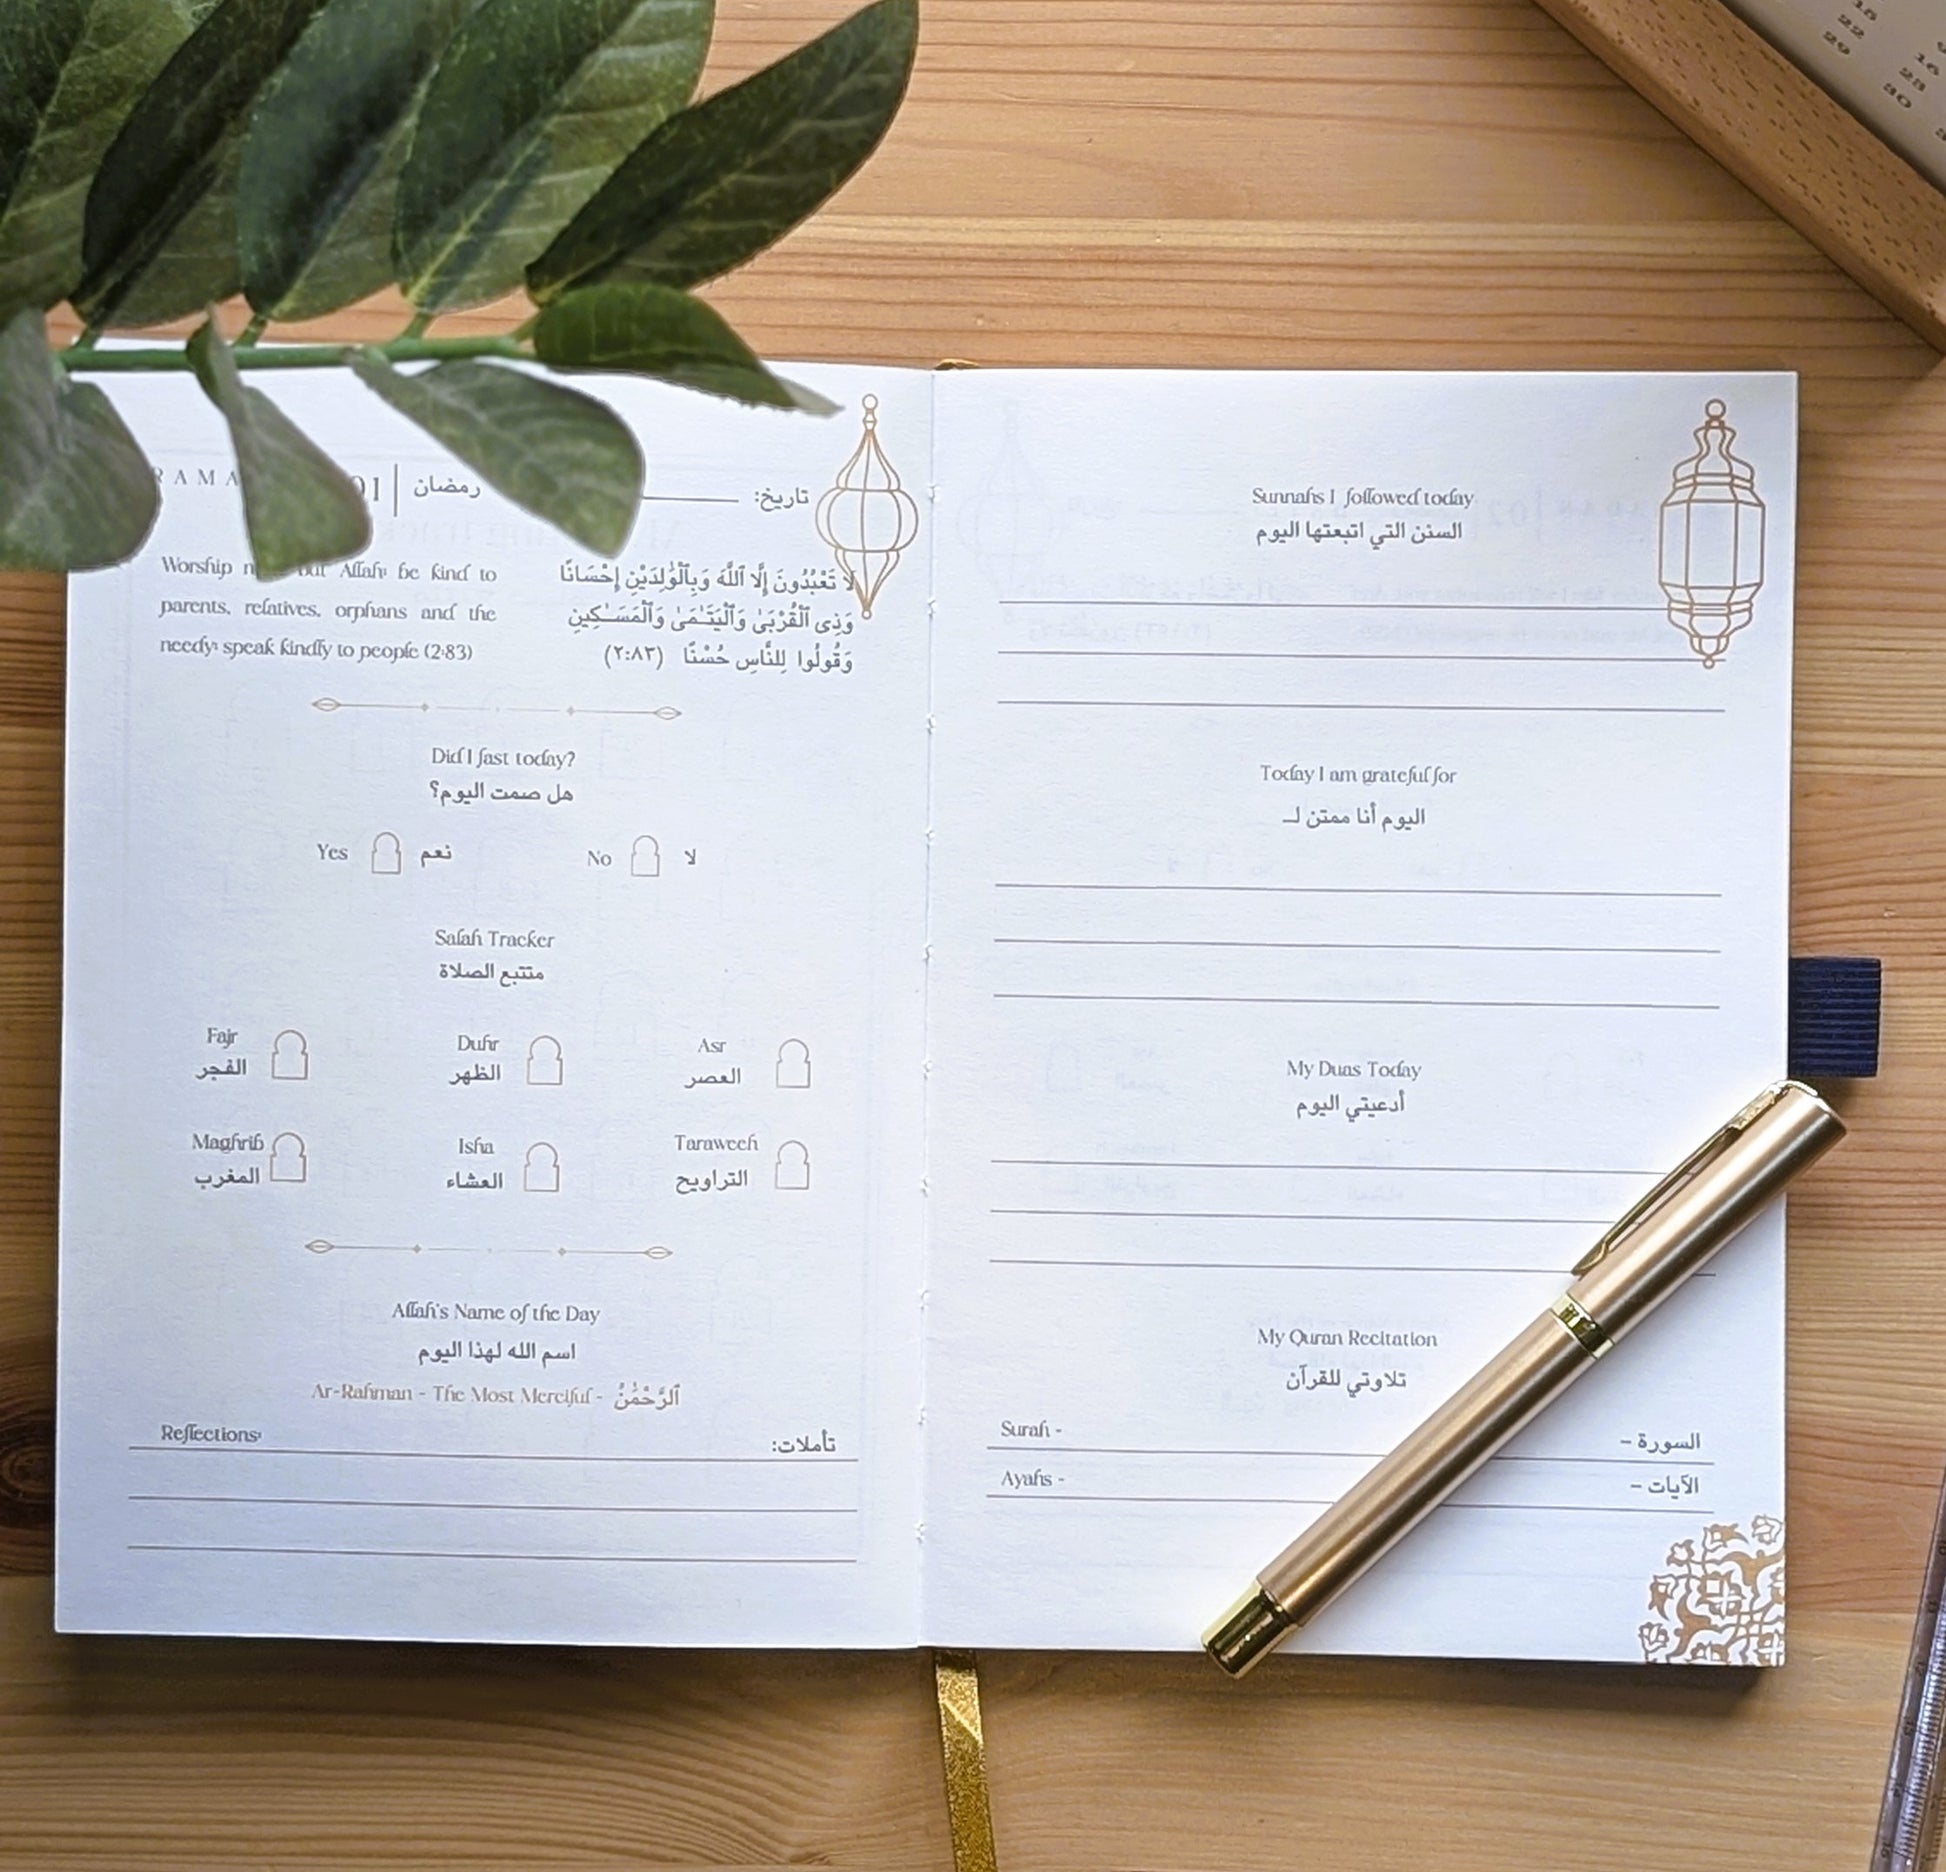 01 | رمضان
تاريخ:
Worship but Allah; be kind to
parents, relatives, orphans and the
needy; speak kindly to people (2:83)
لا تَعْبُدُونَ إِلَّا ٱللَّهَ وَبِٱلْوَٰلِدَيْنِ إِحْسَانًا
وَذِى ٱلْقُرْبَىٰ وَٱلْيَتَـٰمَىٰ وَٱلْمَسَـٰكِينِ
وَقُولُوا لِلنَّاسِ حُسْنًا (٢:٨٣)
Did I fast today?
هل صمت اليوم؟
Yes نعم No لا
Salah Tracker
متتبع الصلاة
Fajr Duhr Asr
الفجر الظهر العصر
Maghrib Isha Taraweeh
المغرب العشاء التراويح
Allah's Name of the Day
اسم الله لهذا اليوم
Ar-Rahman - The Most Merciful - ٱلرَّحْمَٰنُ
Reflections: تأملات:
Sunnahs I followed today
السنن التي اتبعتها اليوم
Today I am grateful for
اليوم أنا ممتن لـ
My Duas Today
أدعيتي اليوم
My Quran Recitation
تلاوتي للقرآن
Surah - السورة -
Ayahs - الآيات -
15
22 16
29 23
30